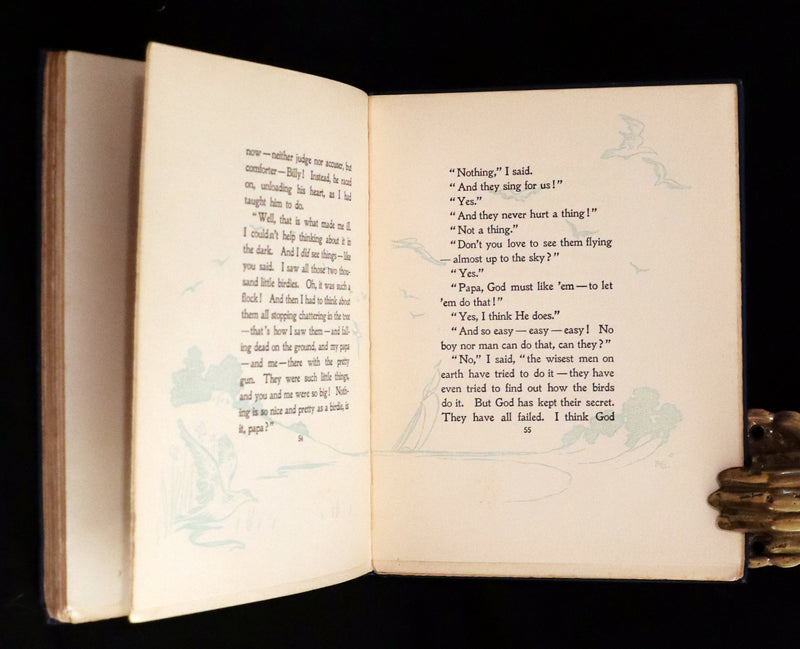 now — neither judge nor accuser, but
comforter — Billy! Instead, he raced
on, unloading his heart, as I had
taught him to do.
"Well, that is what made me ill.
I couldn't help thinking about it in
the dark. And I did see things — like
you said. I saw all those two thou-
sand little birdies. Oh, it was such a
flock! And then I had to think about
them all stopping chattering in the tree
— that's how I saw them — and fall-
ing dead on the ground, and my papa
— and me — there with the pretty
gun. They were such little things,
and you and me were so big! Noth-
ing is so nice and pretty as a birdie, is
it, papa?"
54
"Nothing," I said.
"And they sing for us!"
"Yes."
"And they never hurt a thing!"
"Not a thing."
"Don't you love to see them flying
— almost up to the sky?"
"Yes."
"Papa, God must like 'em — to let
'em do that!"
"Yes, I think He does."
"And so easy — easy — easy! No
boy nor man can do that, can they?"
"No," I said, "the wisest men on
earth have tried to do it — they have
even tried to find out how the birds
do it. But God has kept their secret.
They have all failed. I think God
55